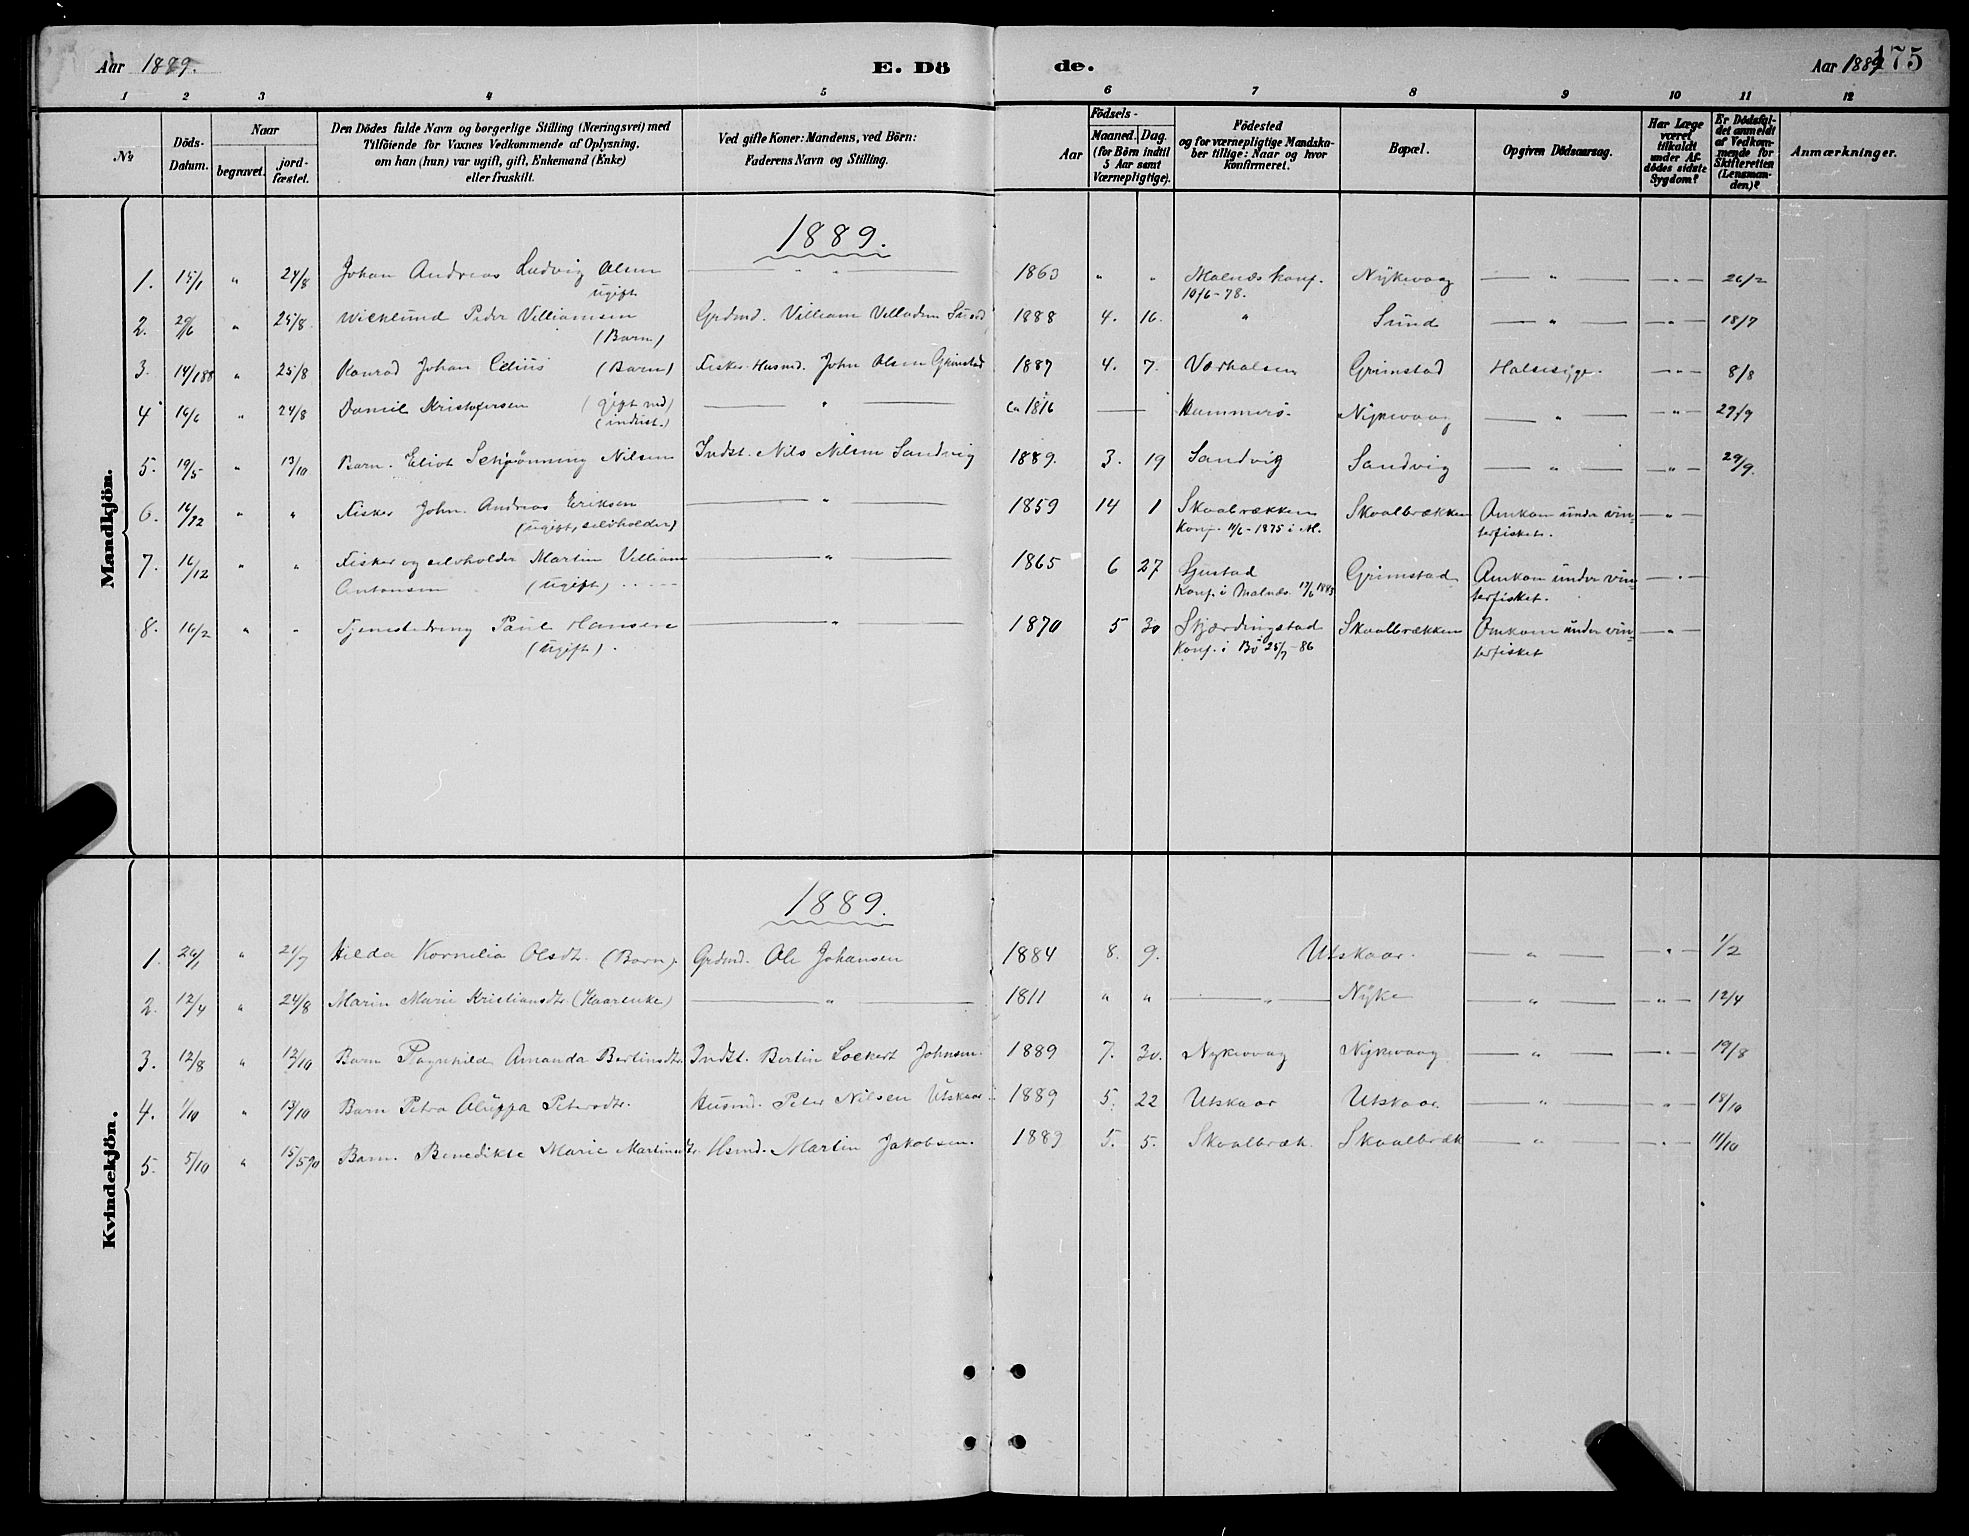 Aar 1889.
E. Dö de.
Aar 1889
175
1 2 3 4 5 6 7 8 9 10 11 12
No
Döds-Datum.
Naar
begravet. jord-fæstet.
Den Dödes fulde Navn og borgerlige Stilling (Næringsvei) med
Tilföiende for Voxnes Vedkommende af Oplysning,
om han (hun) var ugift, gift, Enkemand (Enke)
eller fraskilt.
Ved gifte Koner: Mandens, ved Börn:
Faderens Navn og Stilling.
Födsels-
Aar
Maaned. Dag.
(for Börn indtil
5 Aar samt
Værnepligtige).
Födested
og for værnepligtige Mandska-
ber tillige: Naar og hvor
konfirmeret.
Bopæl.
Opgiven Dödsaarsag.
Har Læge
været
tilkaldt
under Af-
dödes sidste
Sygdom?
Er Dödsfal-
det anmeldt
af Vedkom-
mende for
Skifteretten
(Lensman-
den)?
Anmærkninger.
Mandkjön.
1889.
1. 15/1 " 24/8 Johan Andreas Ludvig Olsen — " " — 1863 " " Malnæs konf. Nykevaag — " — — " — 26/2
ugift 10/6-78.
2. 29/6 " 25/8. Wicklund Peder Villiamsen Grdmd. Villiam Villadsen Sund 1888 4. 16. " Sund — " — — " — 18/7
(Barn)
3. 14/1 88 " 25/8 Konrad Johan Celius (Barn) Fisker Husmd. John Olsen Grimstad 1887 4. 7. Vorhalsen Grimstad Halsesyge. — " — 8/8
4 16/6 " 24/8 Daniel Kristofersen (gift med) — " — ca 1816 — Hammerö. Nykevaag — " — — " — 27/9
(indust.)
5. 19/5 " 13/10 Barn. Eliot Schjönning Nilsen Indst. Nils Nilsen Sandvig 1889. 3. 19 Sandvig Sandvig — " — — " — 29/9.
6. 16/12 " " Fisker John. Andreas Eriksen — " — 1859 14 1 Skaalbrækken Skaalbrækken Omkom under vin-
(ugift, selvholder) Konf. 11/6-1875 i M. terfisket.
7. 16/12 " " Fisker og selvholder Martin Villiam — " — 1865 6 27 Gustad Grimstad Omkom under vin- — " —
Antonsen (ugift) Konf. i Malnes 17/6 1883 terfisket.
8. 16/2 " " Tjenestedreng Paul Hansen — " — 1870 5 30 Skjærdingstad Skaalbrækken Omkom under vin- — " —
(ugift). Konf. i Bö 25/7-86 terfisket
Kvindekjön.
1889.
1. 24/1 " 21/7 Hilda Kornelia Olsdtr. (Barn). Grdmd. Ole Johansen 1884 8. 9. Utskaar. — " — — " — 1/2
2. 12/4 " 24/8 Marin Marie Kristiansdtr (Kaarenke) — " — 1811 " " — " — Nyke — " — — " — 12/4
3. 12/8 " 13/10 Barn Ragnhild Amanda Bertinsdtr. Indst. Bertin Lockert Johnsen. 1889 7. 30. Nykevaag Nykevaag — " — — " — 19/8
4. 1/10 " 13/10 Barn Petra Petersdtr. Husmd. Peter Nilsen Utskaar 1889 5. 22 Utskaar Utskaar. — " — " — 18/10
5. 5/10 " 15/5 90 Barn. Benedikte Marie Martinsdtr. Hsmd. Martin Jakobsen. 1889 5. 5. Skaalbræk. Skaalbræk — " — — " — 11/10